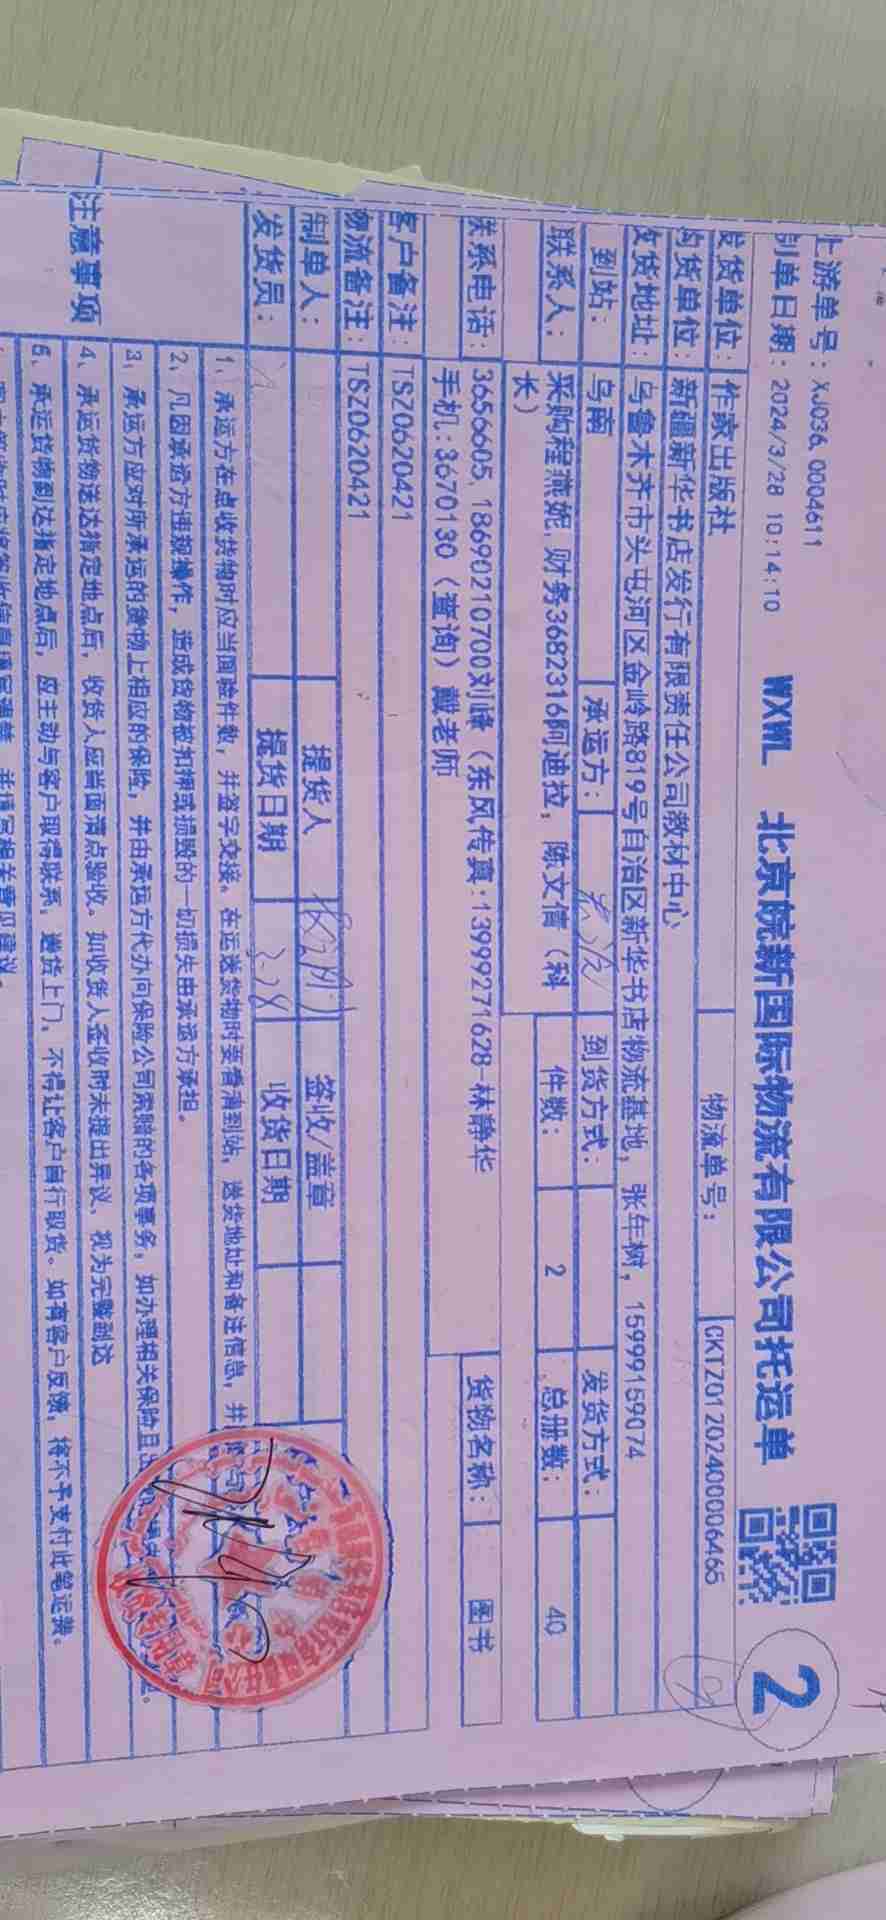 上游单号：XJ036, 0004611
制单日期：2024/3/28 10:14:10
WXWL 北京皖新国际物流有限公司托运单
2
发货单位：作家出版社
物流单号：CKTZ01202400006465
购货单位：新疆新华书店发行有限责任公司教材中心
收货地址：乌鲁木齐市头屯河区金岭路819号自治区新华书店物流基地，张年树，15999159074
到站：乌南 承运方： 到货方式： 发货方式：
联系人：采购程燕妮,财务3682316阿迪拉，陈文倩（科长）
件数：2 总册数：40
联系电话：3656605, 18690210700刘峰（东风传真:13999271628-林静华
手机:3670130（查询）戴老师
货物名称：图书
客户备注：TSZ0620421
物流备注：TSZ0620421
制单人： 提货人 签收/盖章
发货员： 提货日期 3.28 收货日期
注意事项
1、承运方在点收货物时应当面验件数，并签字交接。在运送货物时要看清到站，送货地址和备注信息，并
2、凡因承运方违规操作，造成货物被扣押或损毁的一切损失由承运方承担。
3、承运方应对所承运的货物上相应的保险，并由承运方代办向保险公司索赔的各项事务，如办理相关保险且出
4、承运货物送达指定地点后，收货人应当面清点验收。如收货人签收时未提出异议，视为完整到达
5、承运货物到达指定地点后，应主动与客户取得联系，送货上门，不得让客户自行取货。如有客户反馈，将不予支付此笔运费。